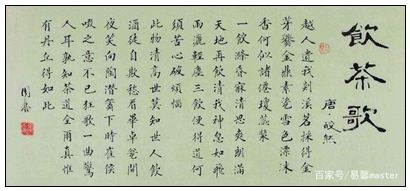 飲茶歌
唐·皎然
越人遺我剡溪茗採得金
芽爨金鼎素瓷雪色漂沫
香何似諸僊瓊蕊漿
一飲滌昏寐清思爽朗滿
天地再飲清我神忽如飛
雨灑輕塵三飲便得道何
須苦心破煩惱
此物清高世莫知世人飲
酒徒自欺愁看畢卓瓮間
夜笑向陶潛籬下時崔侯
啜之意不已狂歌一曲驚
人耳孰知茶道全爾真惟
有丹丘得如此
百家号/易馨master